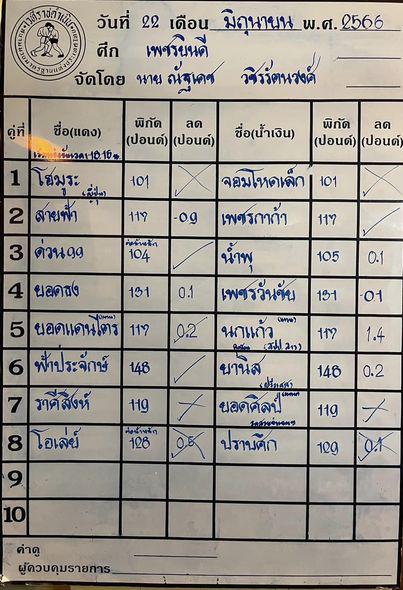 วันที่ 22 เดือน มิถุนายน พ.ศ. 2566
ศึก เพชรยินดี
จัดโดย นาย ณัฐเดช วชิรรัตนวงศ์
คู่ที่ ชื่อ(แดง) พิกัด (ปอนด์) ลด (ปอนด์) ชื่อ(น้ำเงิน) พิกัด (ปอนด์) ลด (ปอนด์)
1 โฮมุระ (ญี่ปุ่น) 101 จอมโหดเล็ก 101
2 สายฟ้า 117 -0.9 เพชรกาก้า 117
3 ด่วน99 104 น้ำพุ 105 0.1
4 ยอดธง 131 0.1 เพชรวันชัย 131 -0.1
5 ยอดแดนไตร (แทน) 117 0.2 นกแก้ว (แทน) 117 1.4
6 ฟ้าประจักษ์ 148 ยานิส (ฝรั่งเศส) 148 0.2
7 ราศีสิงห์ 119 ยอดศิลป์ (แทน) 119
8 โอเล่ย์ 128 0.5 ปราบศึก 129 0.1
9
10
ค่าดู
ผู้ควบคุมรายการ